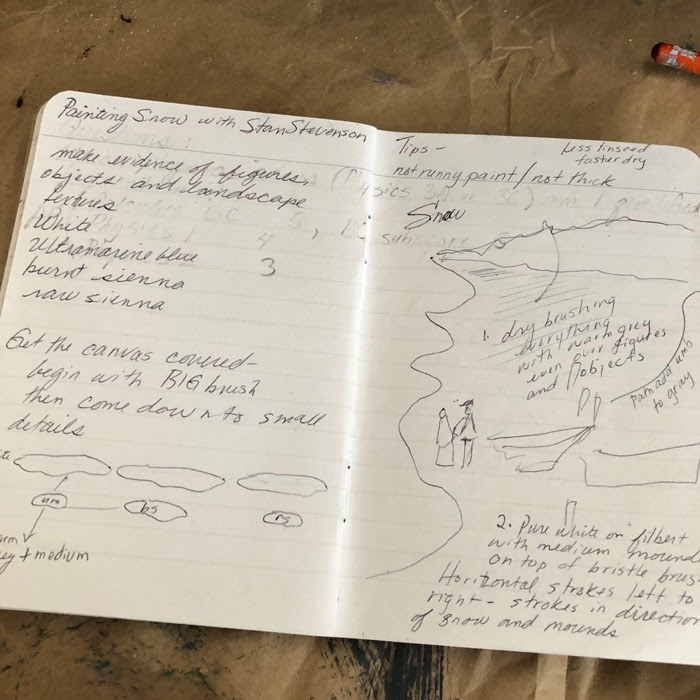 Painting Snow with Stan Stevenson
make evidence of figures,
objects and landscape
textures
White
Ultramarine blue
burnt sienna
raw sienna
4
3
Get the canvas covered-
begin with BIG brush
then come down to small
details
um
bs
rs
medium
Tips -
Less linseed
faster dry
not runny paint / not thick
Snow
1. dry brushing
everything
with warm grey
even over figures
and objects
Path add umb
to gray
2. Pure white on filbert
with medium mound
on top of bristle brus
Horizontal strokes left to
right - strokes in direction
of snow and mounds